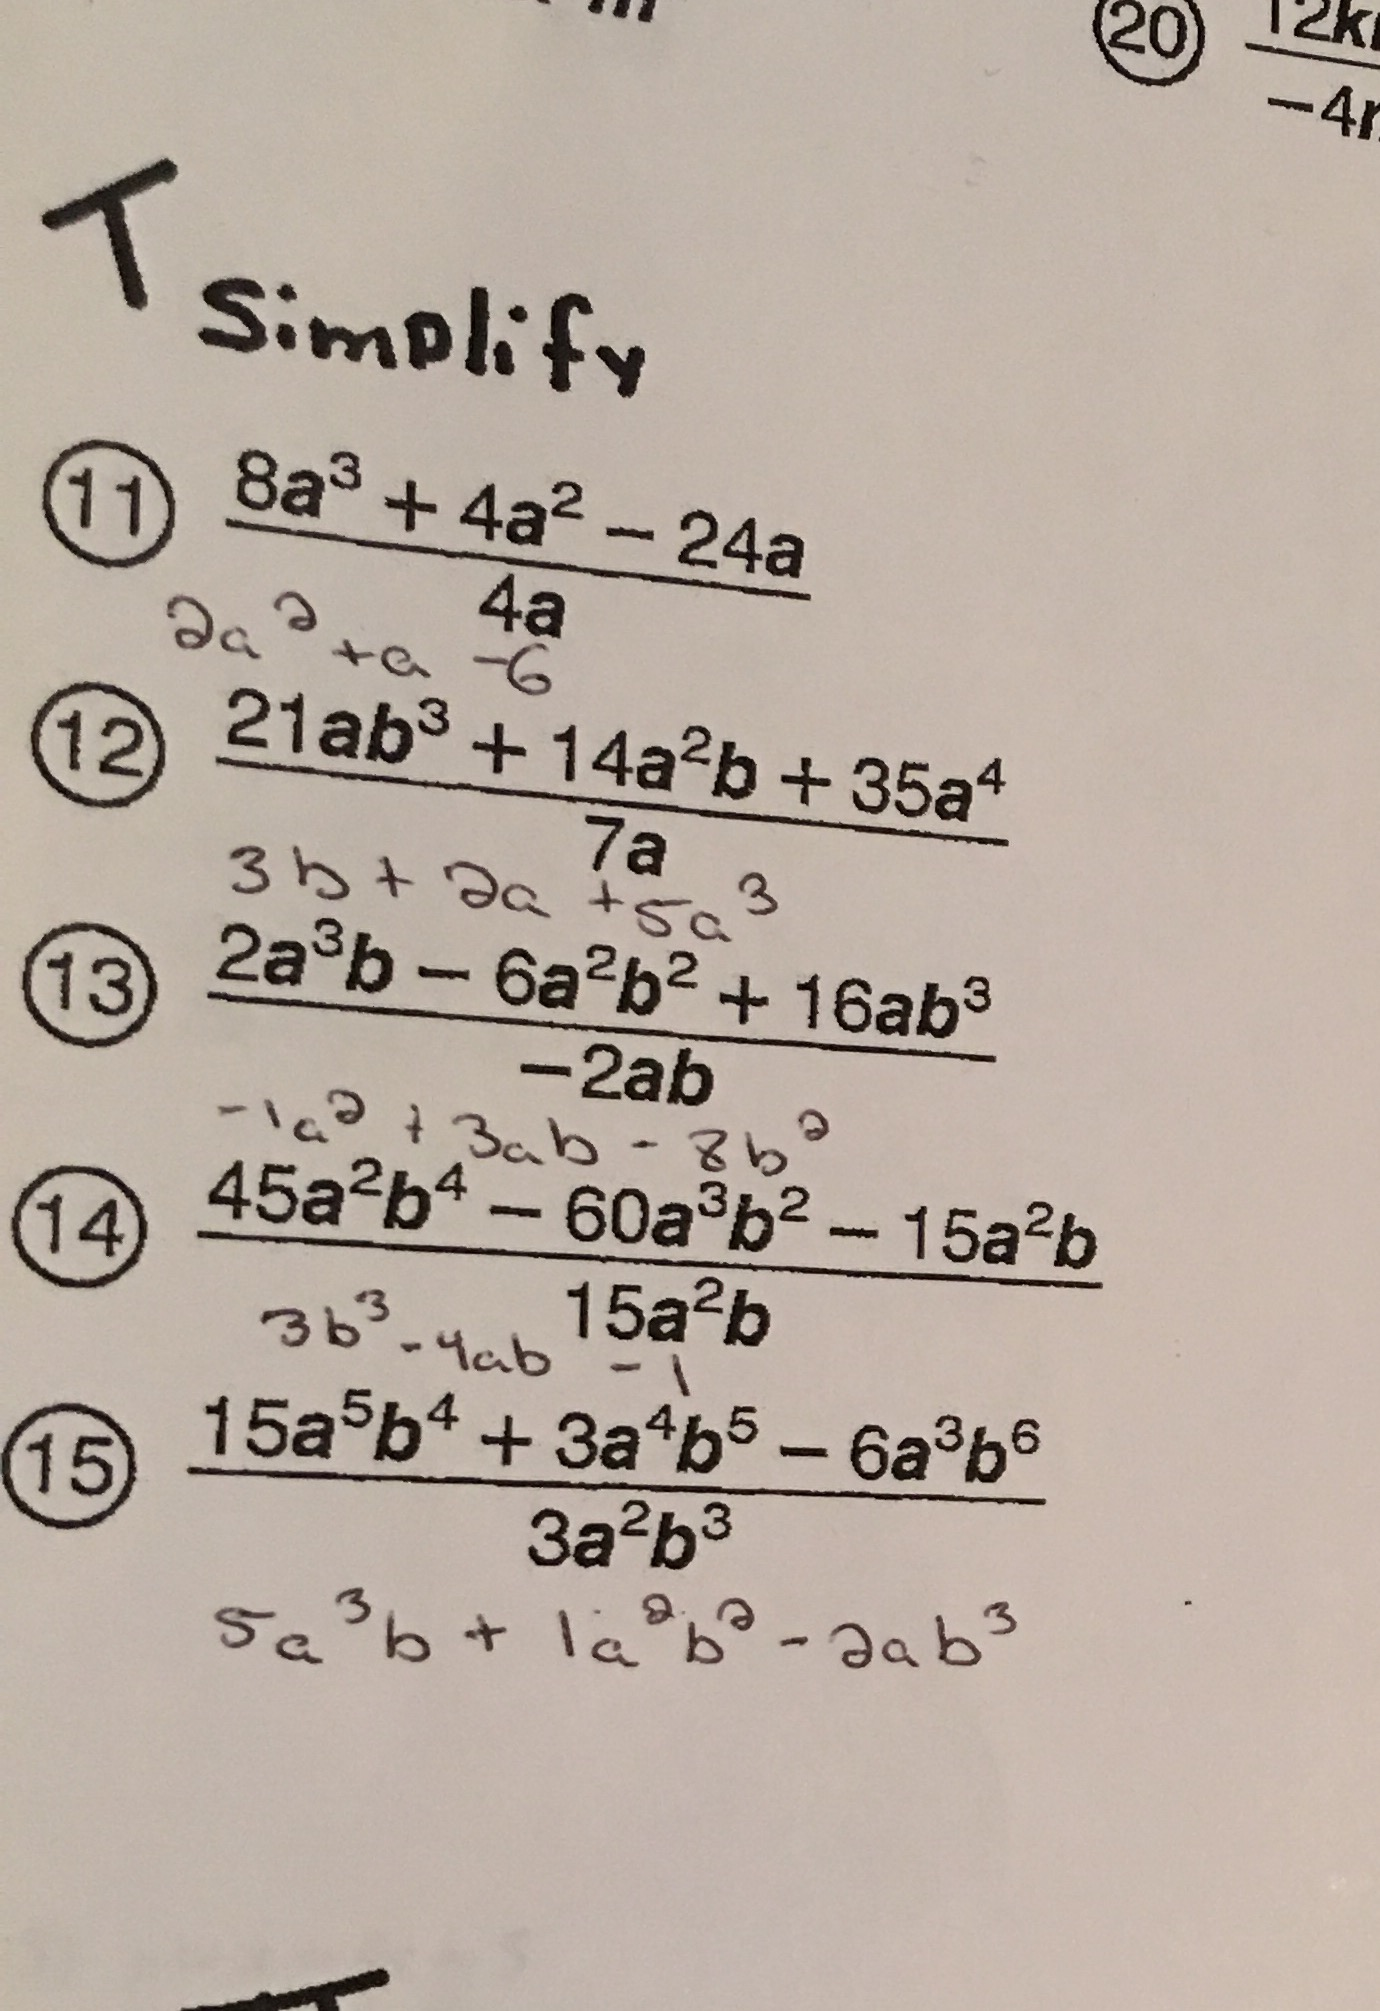 20 12k
-4
T
Simplify
11 8a³ + 4a² - 24a
4a
2a² + a - 6
12 21ab³ + 14a²b + 35a⁴
7a
3b + 2a + 5a³
13 2a³b - 6a²b² + 16ab³
-2ab
-1a² + 3ab - 8b²
14 45a²b⁴ - 60a³b² - 15a²b
15a²b
3b³ - 4ab - 1
15 15a⁵b⁴ + 3a⁴b⁵ - 6a³b⁶
3a²b³
5a³b + 1a²b² - 2ab³